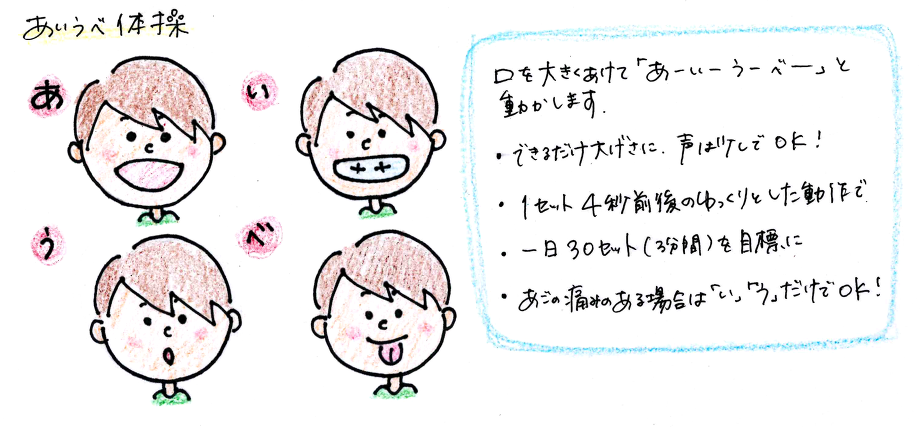 あいうべ体操
あ
い
う
べ
口を大きくあけて「あーいーうーべー」と
動かします.
・できるだけ大げさに、声は無しでOK!
・1セット4秒前後のゆっくりとした動作で
・一日30セット(3分間)を目標に
・あごの痛みのある場合は「い」「う」だけでOK!